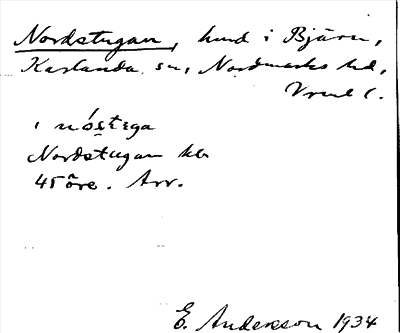 Nordstugan, hmd i Bjärn,
Karlanda sn, Nordmarks hd,
Vrml l.
i nóstega
Nordstugan kb
45 öre. Arr.
E. Anderson 1934